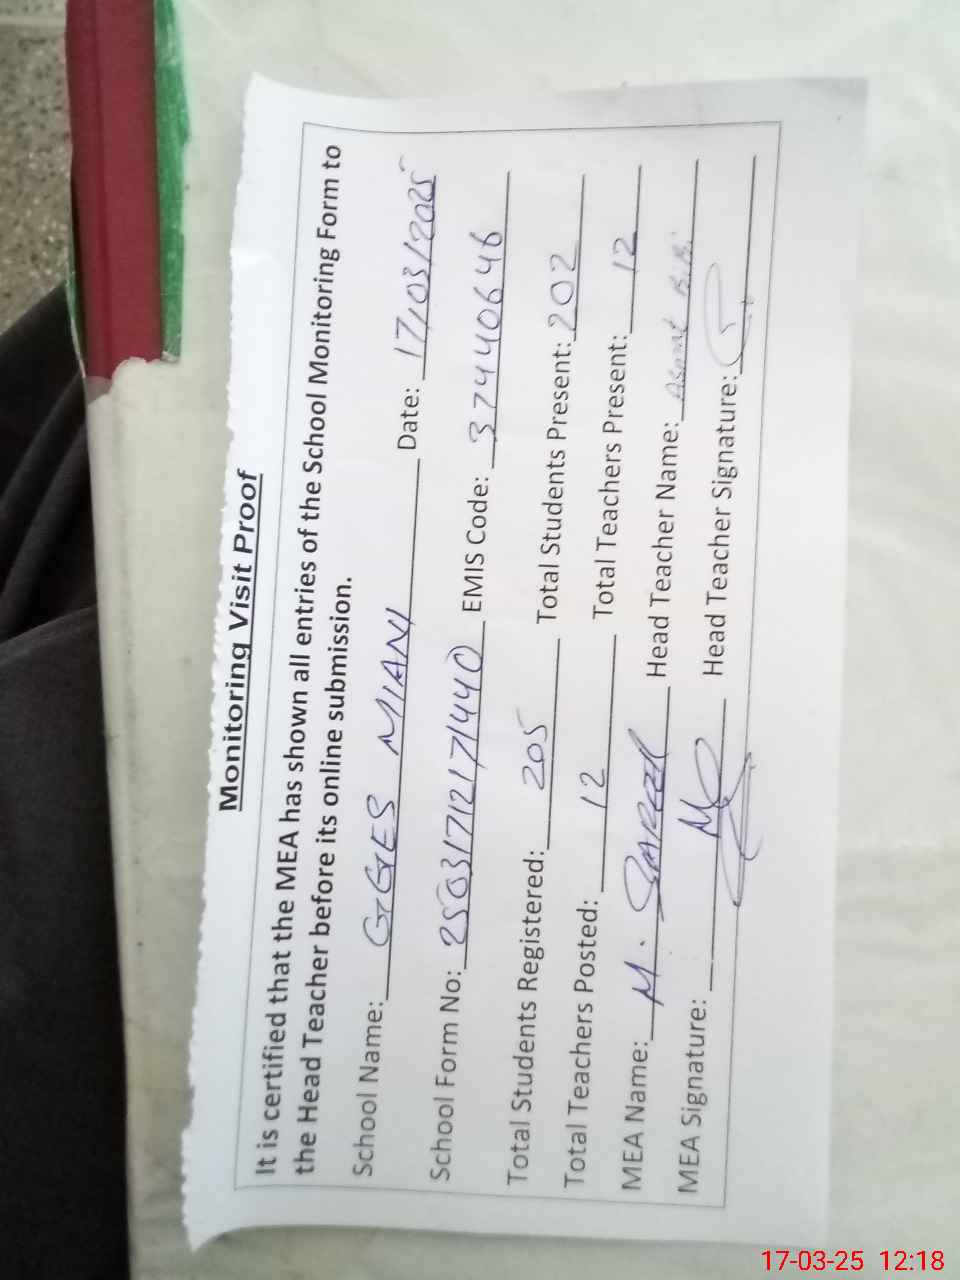 Monitoring Visit Proof
It is certified that the MEA has shown all entries of the School Monitoring Form to
the Head Teacher before its online submission.
School Name: GGES MIANI Date: 17/03/2025
School Form No: 250317121771440 EMIS Code: 37440646
Total Students Registered: 205 Total Students Present: 202
Total Teachers Posted: 12 Total Teachers Present: 12
MEA Name: M. Head Teacher Name: Asmat B.B.
MEA Signature: Head Teacher Signature:
17-03-25 12:18